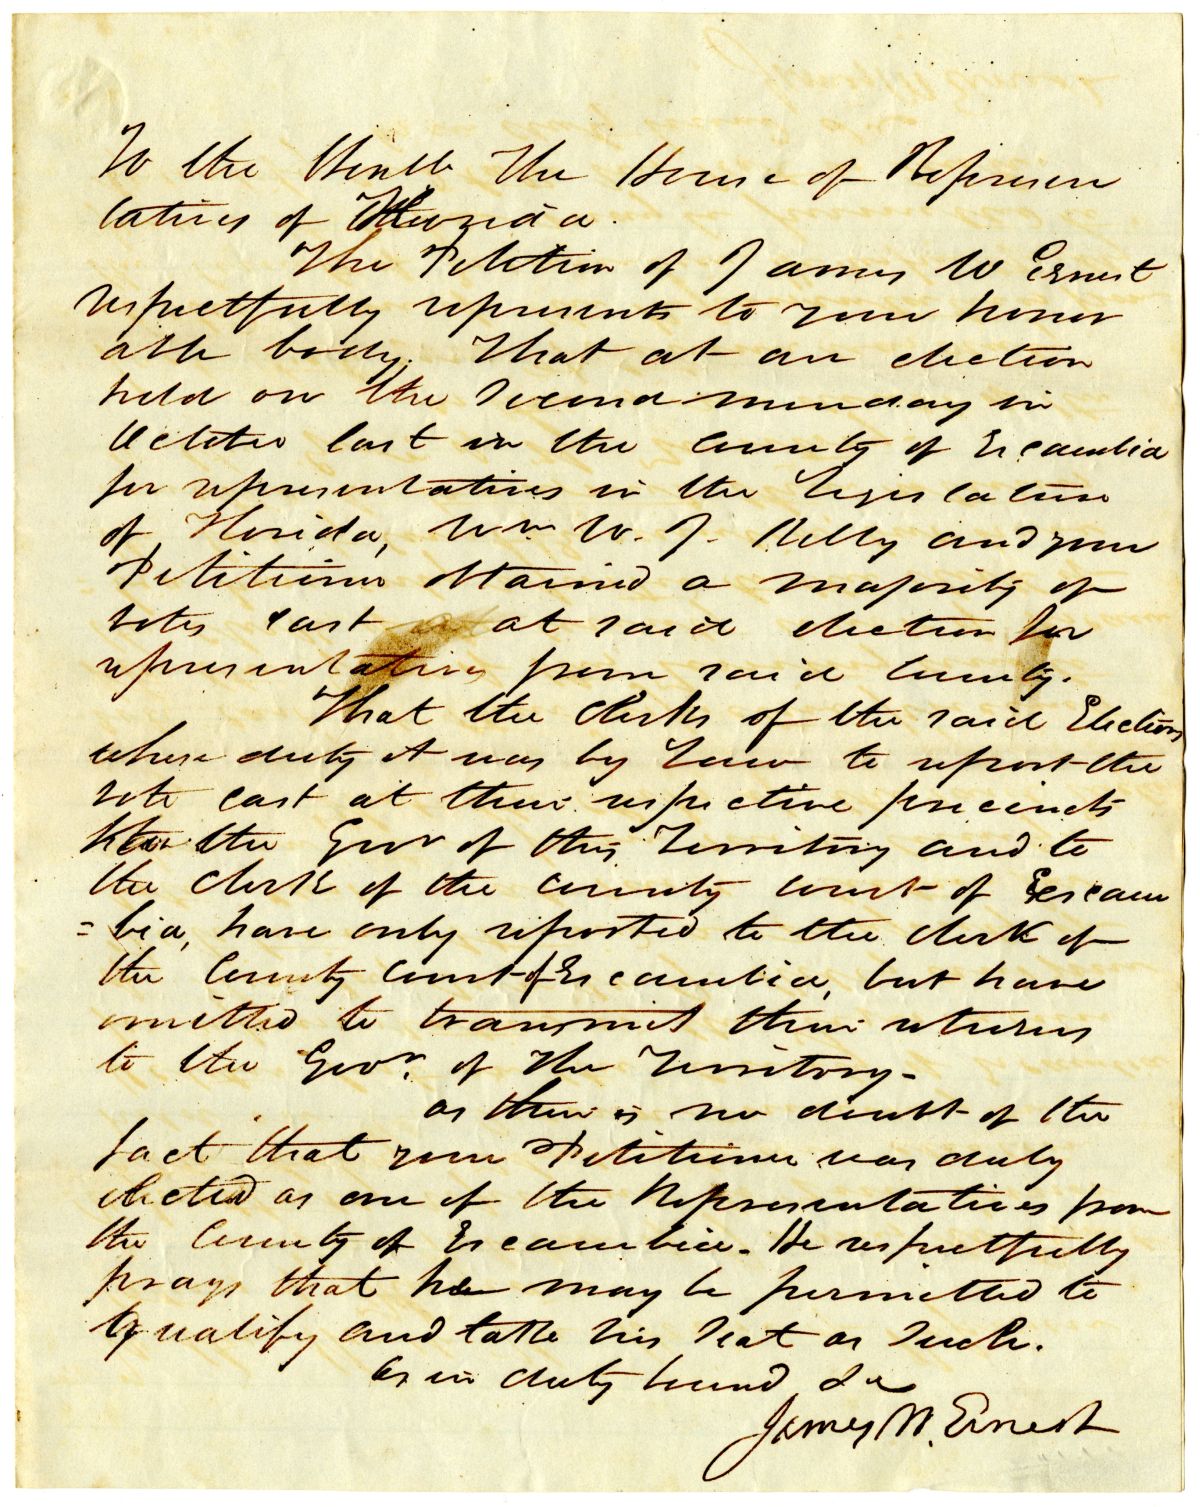 To the Honble The House of Represen
tatives of Florida.
The Petition of James W Ernest
respectfully represents to your honor
able body. That at an election
held on the second monday in
October last in the county of Escambia
for representatives in the Legislature
of Florida, Wm. W. J. Kelly and your
Petitioner obtained a majority of
votes cast at said election for
representatives from said County.
That the clerks of the said Elections
whose duty it was by Law to report the
vote cast at their respective precincts
to the Govr of this Territory and to
the clerk of the county court of Escam
=bia, have only reported to the clerk of
the County Court of Escambia, but have
omitted to transmit their returns
to the Govr. of the Territory-
as there is no doubt of the
fact that your Petitioner was duly
elected as one of the Representatives from
the County of Escambia. He respectfully
prays that he may be permitted to
qualify and take his seat as such.
As in duty bound &c
James W. Ernest